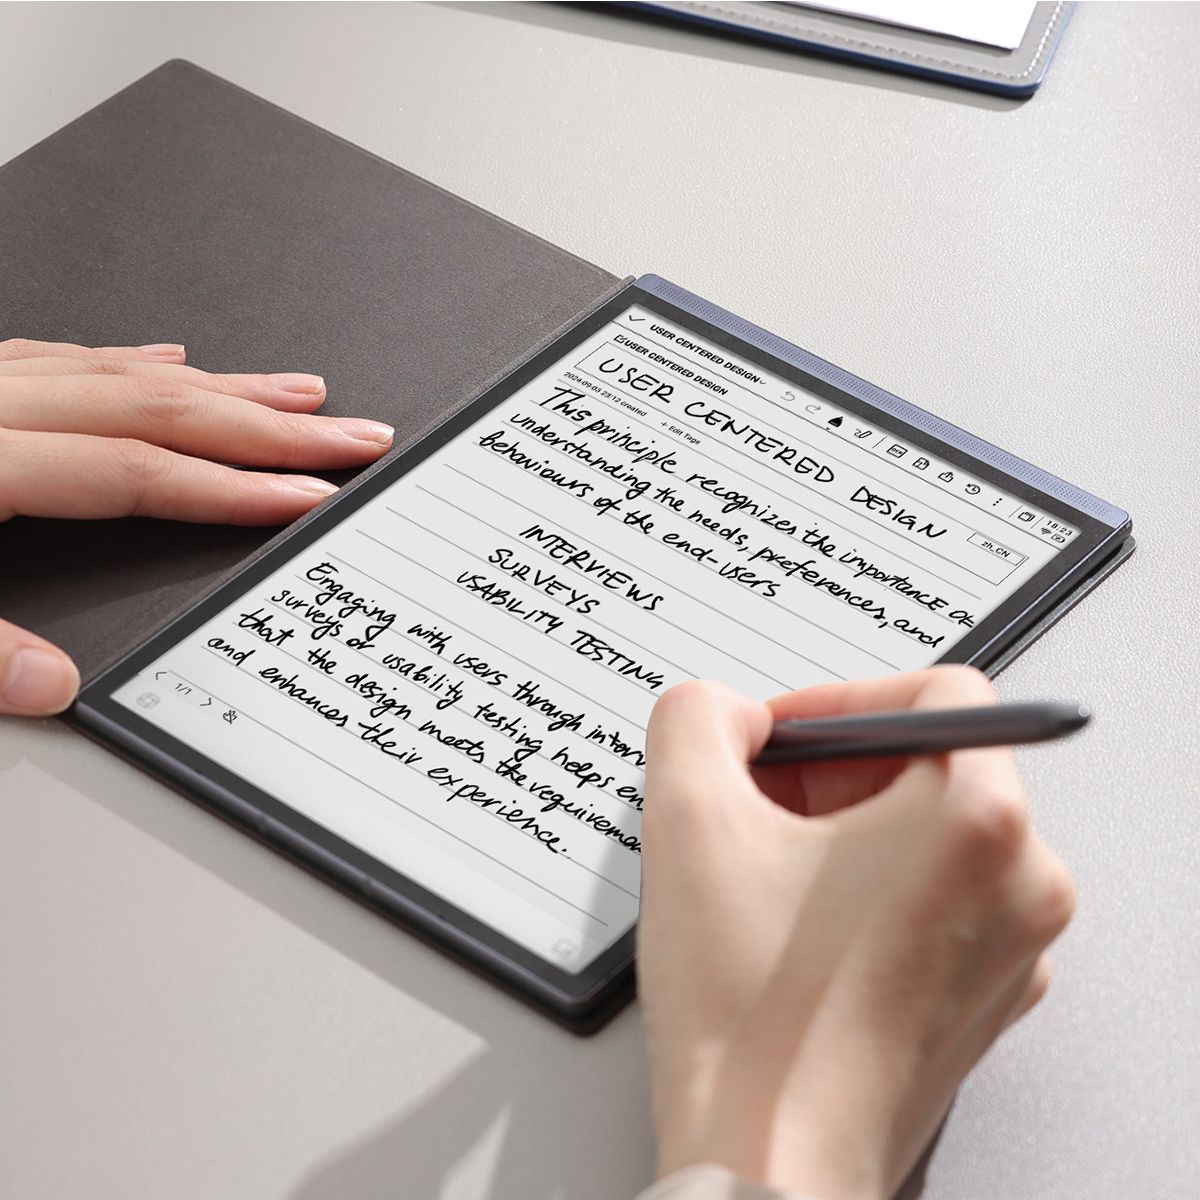 USER CENTERED DESIGN
18:23
USER CENTERED DESIGN
USER CENTERED DESIGN
OCR
zh_CN
2024-09-03 23:12 created
+ Edit Tags
This principle recognizes the importance of
understanding the needs, preferences, and
behaviours of the end-users
INTERVIEWS
SURVEYS
USABILITY TESTING
Engaging with users through interv
surveys or usability testing helps en
that the design meets the requiremen
and enhances their experience.
< 1/1 >